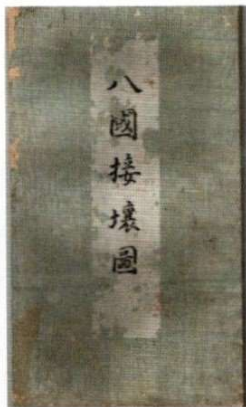 八國接壤圖